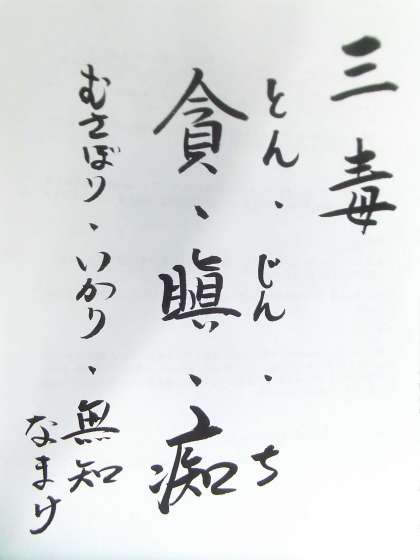 三毒
とん・じん・ち
貪、瞋、痴
むさぼり、いかり、無知
なまけ